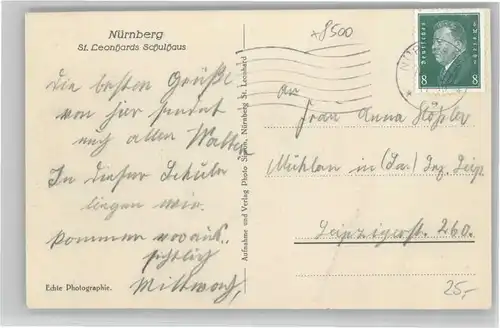 Nürnberg
St. Leonhards Schulhaus
*8500
Die besten Grüße
von hier sendet
euch allen Walter
In dieser Schule
liegen wir.
Kommen voraus-
sichtlich
Mittwoch,
Echte Photographie.
Aufnahme und Verlag Photo Nürnberg St. Leonhard
Deutsches Reich
8 8
An
Frau Anna
in (Sa.)
Leipzigerst. 260.
25,-